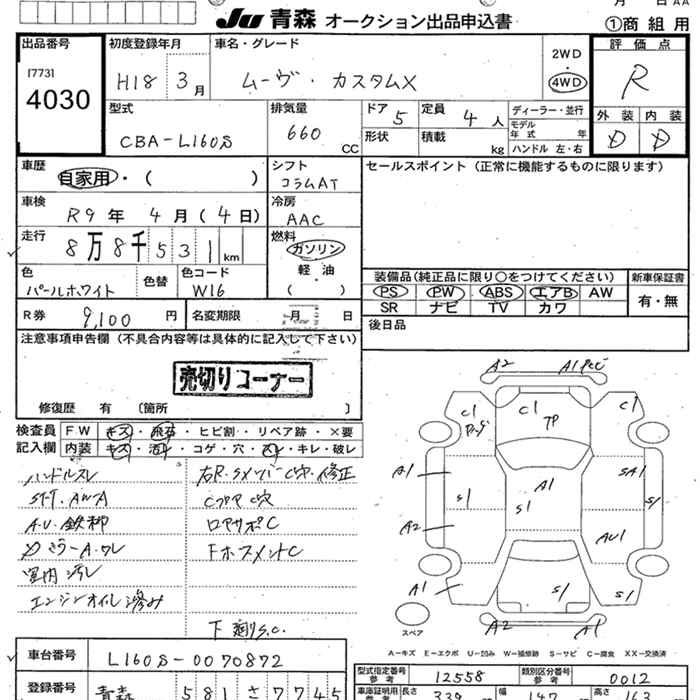 JU 青森 オークション出品申込書
①商 組 用
出品番号
17731
4030
初度登録年月
H18 3 月
車名・グレード
ムーヴ・カスタムX
2WD
4WD
評 価 点
R
型式
CBA-L160S
排気量
660 CC
ドア 5
定員 4 人
形状
積載 kg
ディーラー・並行
モデル年式 年
ハンドル 左・右
外 装 内 装
D D
車歴
自家用・( )
シフト
コラムAT
セールスポイント(正常に機能するものに限ります)
車検
R9 年 4 月 (4 日)
冷房
AAC
走行
8万8千531 km
燃料
ガソリン
軽 油
( )
色
パールホワイト
色替
色コード
W16
装備品(純正品に限り○をつけてください)
PS PW ABS エアB AW
SR ナビ TV カワ
新車保証書
有・無
R券 9,100 円
名変期限 月 日
後日品
注意事項申告欄(不具合内容等は具体的に記入して下さい)
売切りコーナー
修復歴 有 〔箇所 〕
検査員記入欄
FW キズ・飛石・ヒビ割・リペア跡・×要
内装 キズ・汚レ・コゲ・穴・スレ・キレ・破レ
ハンドルスレ
右R.SメンバーC穴・修正
CフロアC穴
ロアサポC
室内汚レ
エンジンオイル滲み
下廻りS.C.
A2 A1
C1 C1 C1
7P
A1 A1 SA1
S1 S1 S1
A2 AU1
A1 S1 S1
A2 A1
スペア
A-キズ E-エクボ U-凹み W-補修跡 S-サビ C-腐食 XX-交換済
車台番号
L160S-0070872
型式指定番号 参考 12558
類別区分番号 参考 0012
登録番号
青森 581 さ 7745
車庫証明用 参考
長さ 339
幅 147
高さ 163